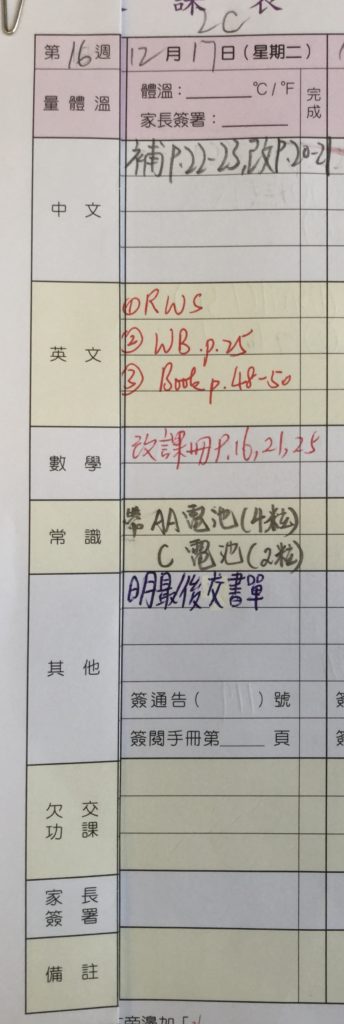 課 表
2C
第16週
12月17日(星期二)
量體溫
體溫：______℃/℉
家長簽署：______
完成
中文
補P.22-23,改P.20-21
英文
①RWS
② WB.p.25
③ Book p.48-50
數學
改課冊P.16,21,25
常識
帶 AA電池(4粒)
C 電池(2粒)
其他
明最後交書單
簽通告( )號
簽閱手冊第____頁
欠交功課
家長簽署
備註